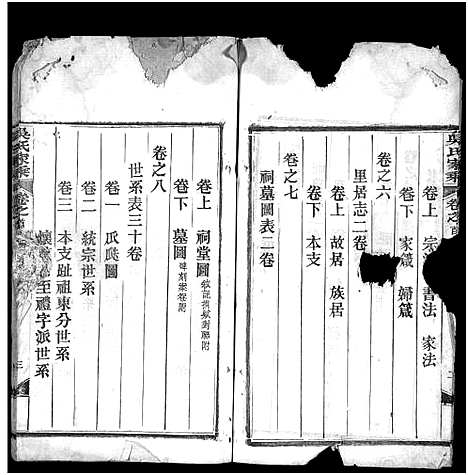 吳氏家乘
卷之首
卷上 宗 書法 家法
卷下 家箴 婦箴
卷之六
里居志二卷
卷上 故居 族居
卷下 本支
卷之七
祠墓圖表二卷
卷上 祠堂圖
卷下 墓圖
卷之八
世系表三十卷
卷一 瓜瓞圖
卷二 統宗世系
卷三 本支趾祖東分世系
至禮字派世系
吳氏家乘
卷之首
三